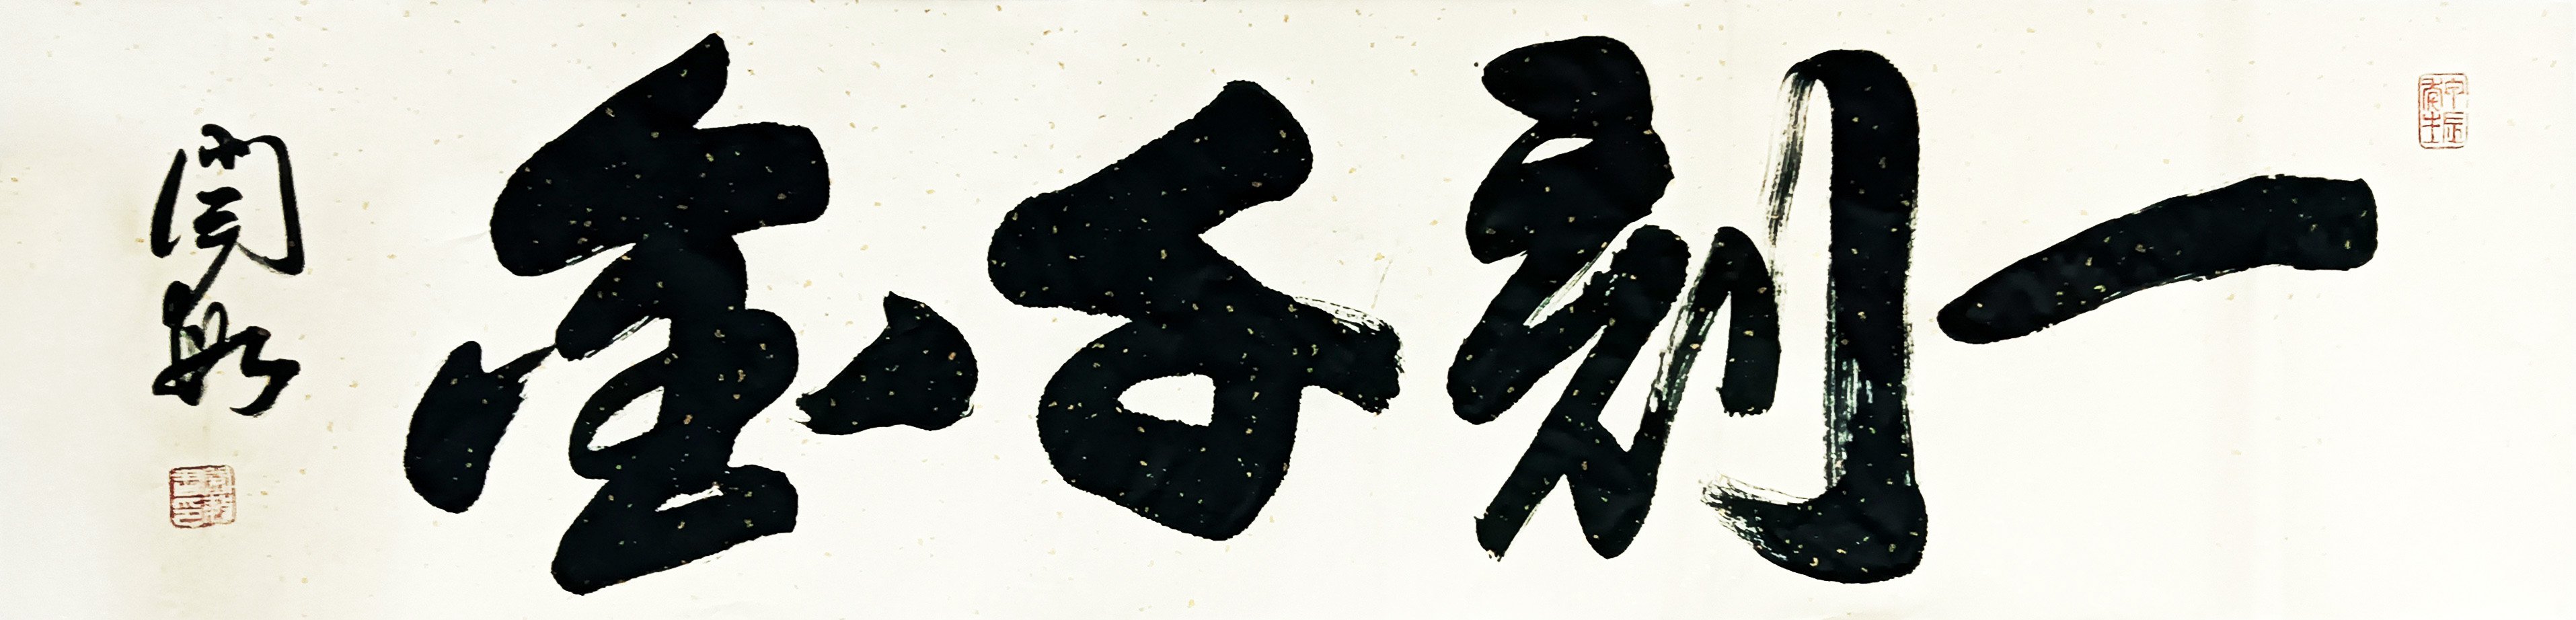 一刻千金